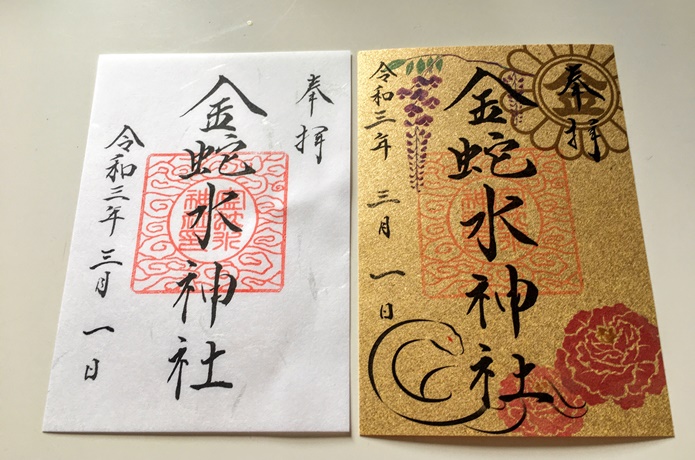 奉拝
金蛇水神社
令和三年三月一日
奉拝
金
金蛇水神社
令和三年三月一日